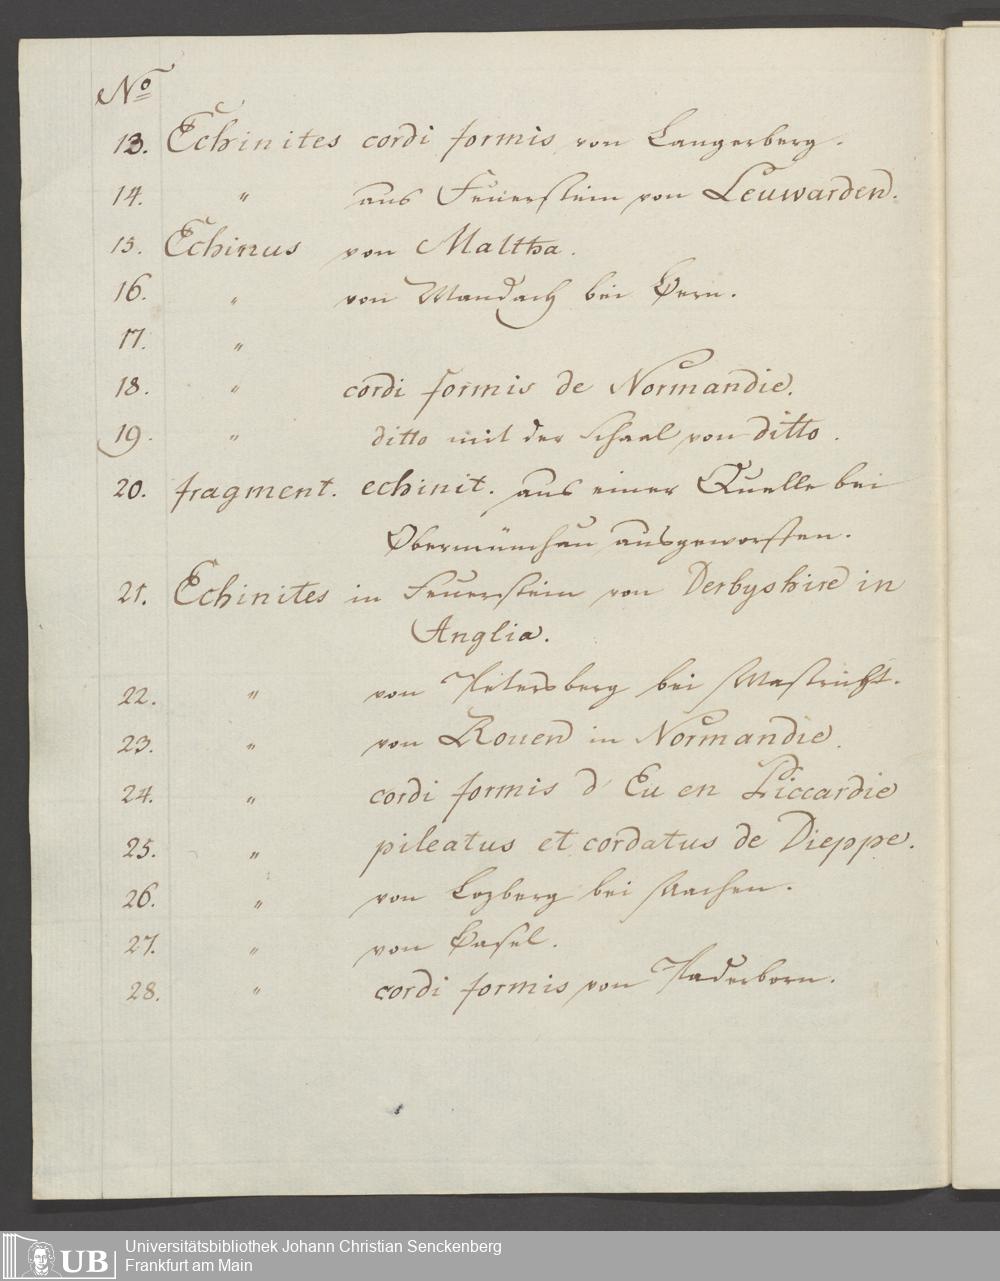 No
13. Echinites cordi formis von Langerberg.
14. " aus Feuerstein von Leuwarden.
15. Echinus von Maltha.
16. " von Mandach bei Bern.
17. "
18. " cordi formis de Normandie.
19. " ditto mit der Schaal von ditto.
20. fragment. echinit. aus einer Quelle bei
ausgeworffen.
21. Echinites in Feuerstein von Derbyshire in
Anglia.
22. " von Petersberg bei Mastricht.
23. " von Rouen in Normandie.
24. " cordi formis d'Eu en Piccardie
25. " pileatus et cordatus de Dieppe.
26. " von bei Aachen.
27. " von Basel.
28. " cordi formis von Paderborn.
UB
Universitätsbibliothek Johann Christian Senckenberg
Frankfurt am Main